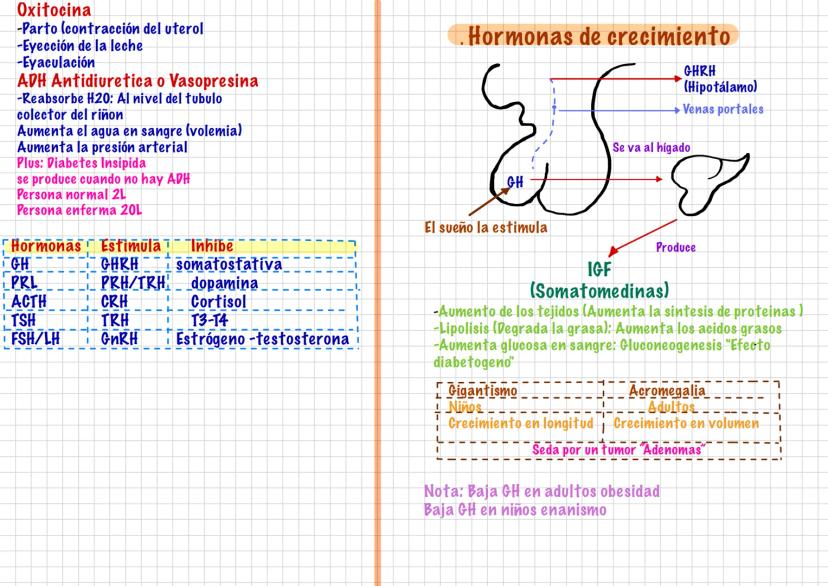 Oxitocina
-Parto (contracción del uterol
-Eyección de la leche
-Eyaculación
ADH Antidiuretica o Vasopresina
-Reabsorbe H20: Al nivel del tubulo
colector del riñon
Aumenta el agua en sangre (volemia)
Aumenta la presión arterial
Plus: Diabetes Insipida
se produce cuando no hay ADH
Persona normal 2L
Persona enferma 20L
Hormonas Estimula Inhibe
GH GHRH somatostativa
PRL PRH/TRH dopamina
ACTH CRH Cortisol
TSH TRH T3-T4
FSH/LH GnRH Estrógeno -testosterona
. Hormonas de crecimiento
GHRH
(Hipotálamo)
Venas portales
Se va al hígado
GH
El sueño la estimula
Produce
IGF
(Somatomedinas)
-Aumento de los tejidos (Aumenta la sintesis de proteinas )
-Lipolisis (Degrada la grasa): Aumenta los acidos grasos
-Aumenta glucosa en sangre: Gluconeogenesis "Efecto
diabetogeno"
Gigantismo Acromegalia
Niños Adultos
Crecimiento en longitud Crecimiento en volumen
Seda por un tumor "Adenomas"
Nota: Baja GH en adultos obesidad
Baja GH en niños enanismo